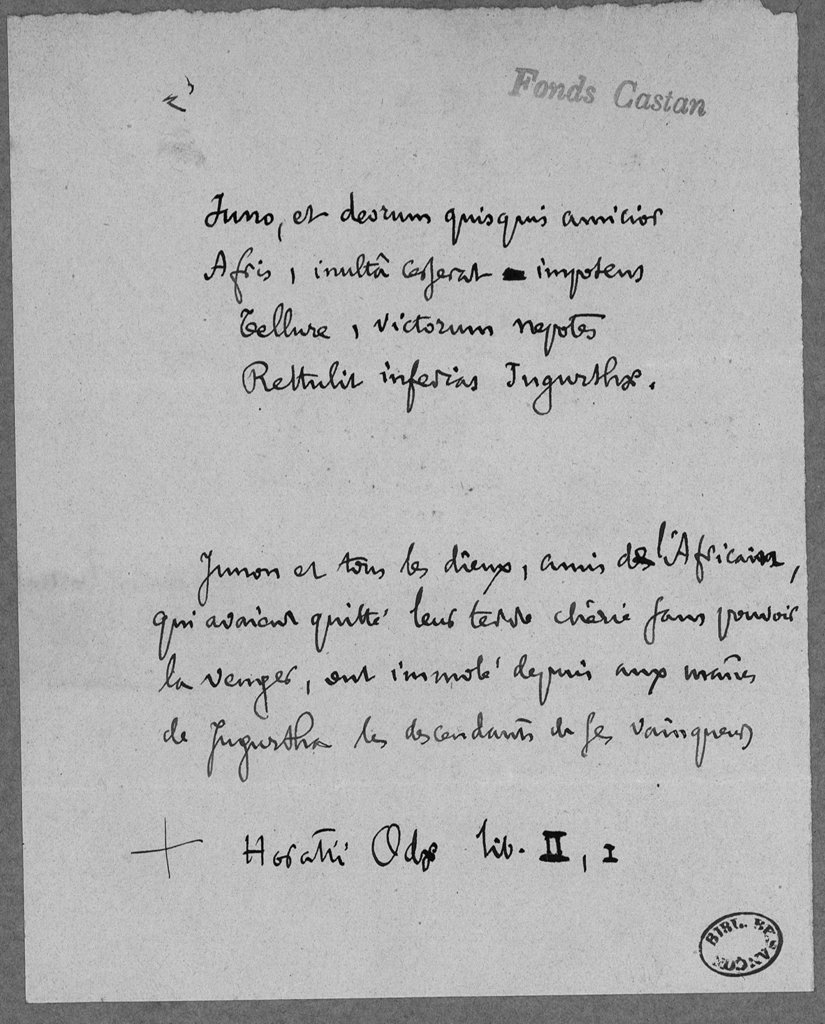 Fonds Castan
Juno, et deorum quisquis amicior
Afris, inultâ cesserat impotens
Tellure, victorum nepotes
Rettulit inferias Jugurthæ.
Junon et tous les dieux, amis de l'Africain,
qui avaient quitté leur terre chérie sans pouvoir
la venger, ont immolé depuis aux mânes
de Jugurtha les descendants de ses vainqueurs
Horatii Odæ lib. II, 1
BIBL. BESANÇON